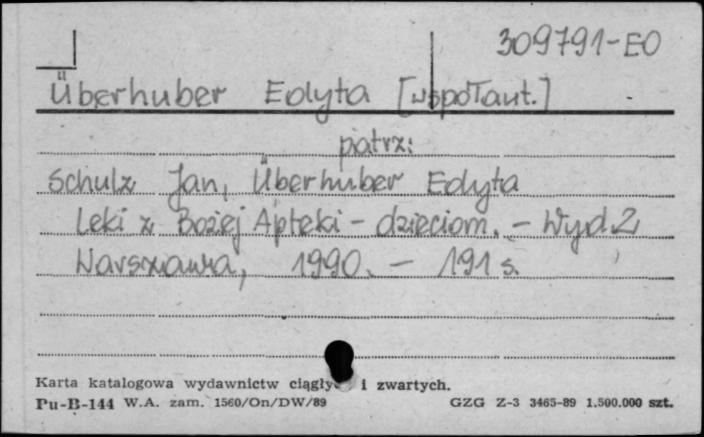 309791-EO
Überhuber Edyta [współaut.]
patrz:
Schulz Jan, Überhuber Edyta
Leki z Bożej Apteki - dzieciom. - Wyd. 2
Warszawa, 1990. - 191 s.
Karta katalogowa wydawnictw ciągłych i zwartych.
Pu-B-144 W.A. zam. 1560/On/DW/89 GZG Z-3 3465-89 1.500.000 szt.